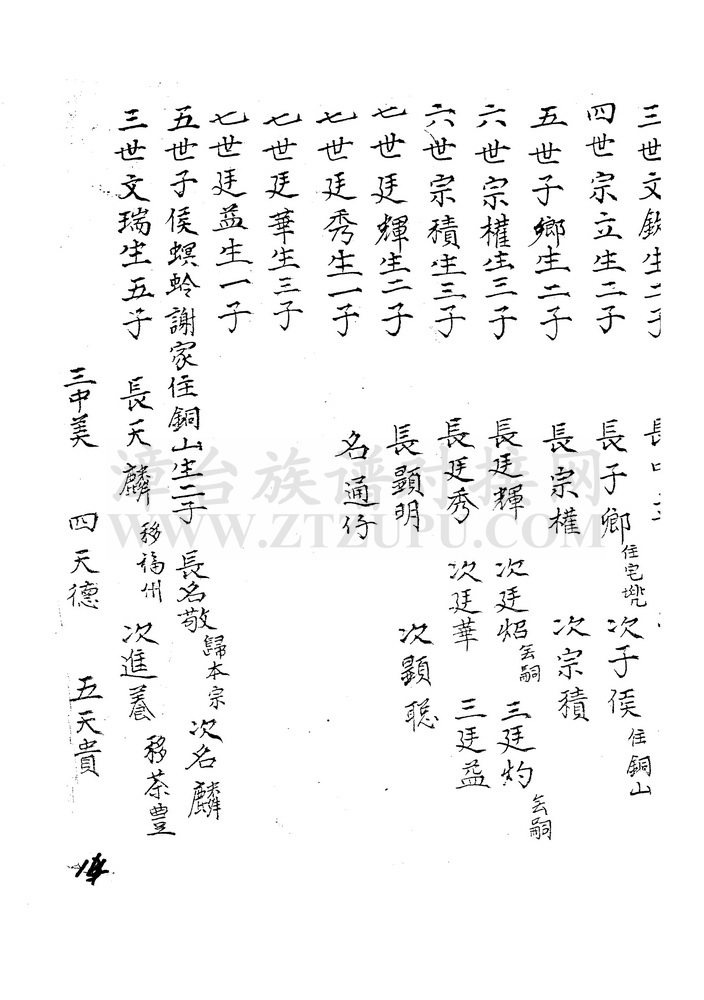 三世文欽生二子 長口立
四世宗立生二子 長子鄉住宅兠 次子侯住銅山
五世子鄉生二子 長宗權 次宗積
六世宗權生三子 長廷輝 次廷炤乏嗣 三廷灼乏嗣
六世宗積生三子 長廷秀 次廷華 三廷益
七世廷輝生二子 長顯明 次顯聡
七世廷秀生一子 名通仔
七世廷華生三子
七世廷益生一子
五世子侯螟蛉謝家住銅山生二子 長名敬歸本宗 次名麟
三世文瑞生五子 長天麟移福州 次進養移茶豐
三中美 四天德 五天貴
14
漳台族谱对接网
WWW.ZTZUPU.COM